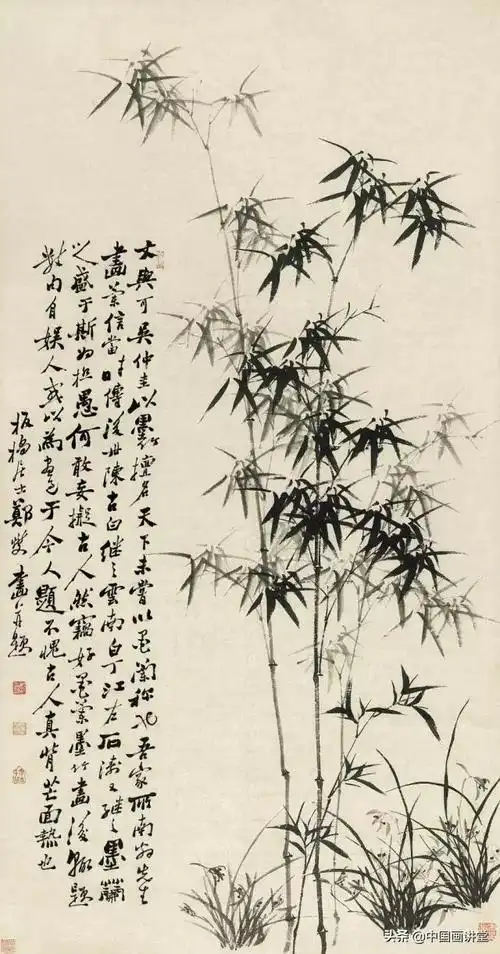 文與可吳仲圭以墨竹擅名天下未嘗以墨蘭称也吾家所南翁先生
畫蘭信當時傳後世陳古白繼之雲南白丁江左石濤又繼之墨蘭
之盛于斯为极愚何敢妄擬古人然竊好墨蘭墨竹畫後輒題
内自娱人或以為畫于今人題不愧古人真背芒面熱也
板橋居士鄭燮畫并題
头条 @中国画讲堂